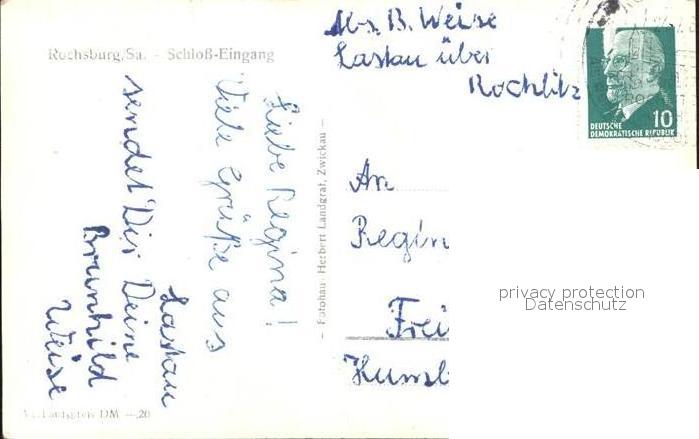 Rochsburg/Sa. - Schloß-Eingang
Liebe Regina!
Viele Grüße aus
Lastau
sendet Dir Deine
Brunhild
Weise
Verkaufspreis DM —,20
— Fotohaus Herbert Landgraf, Zwickau —
Abs. B. Weise
Lastau über
Rochlitz
10
DEUTSCHE
DEMOKRATISCHE REPUBLIK
An
Regin
Frei
privacy protection
Datenschutz